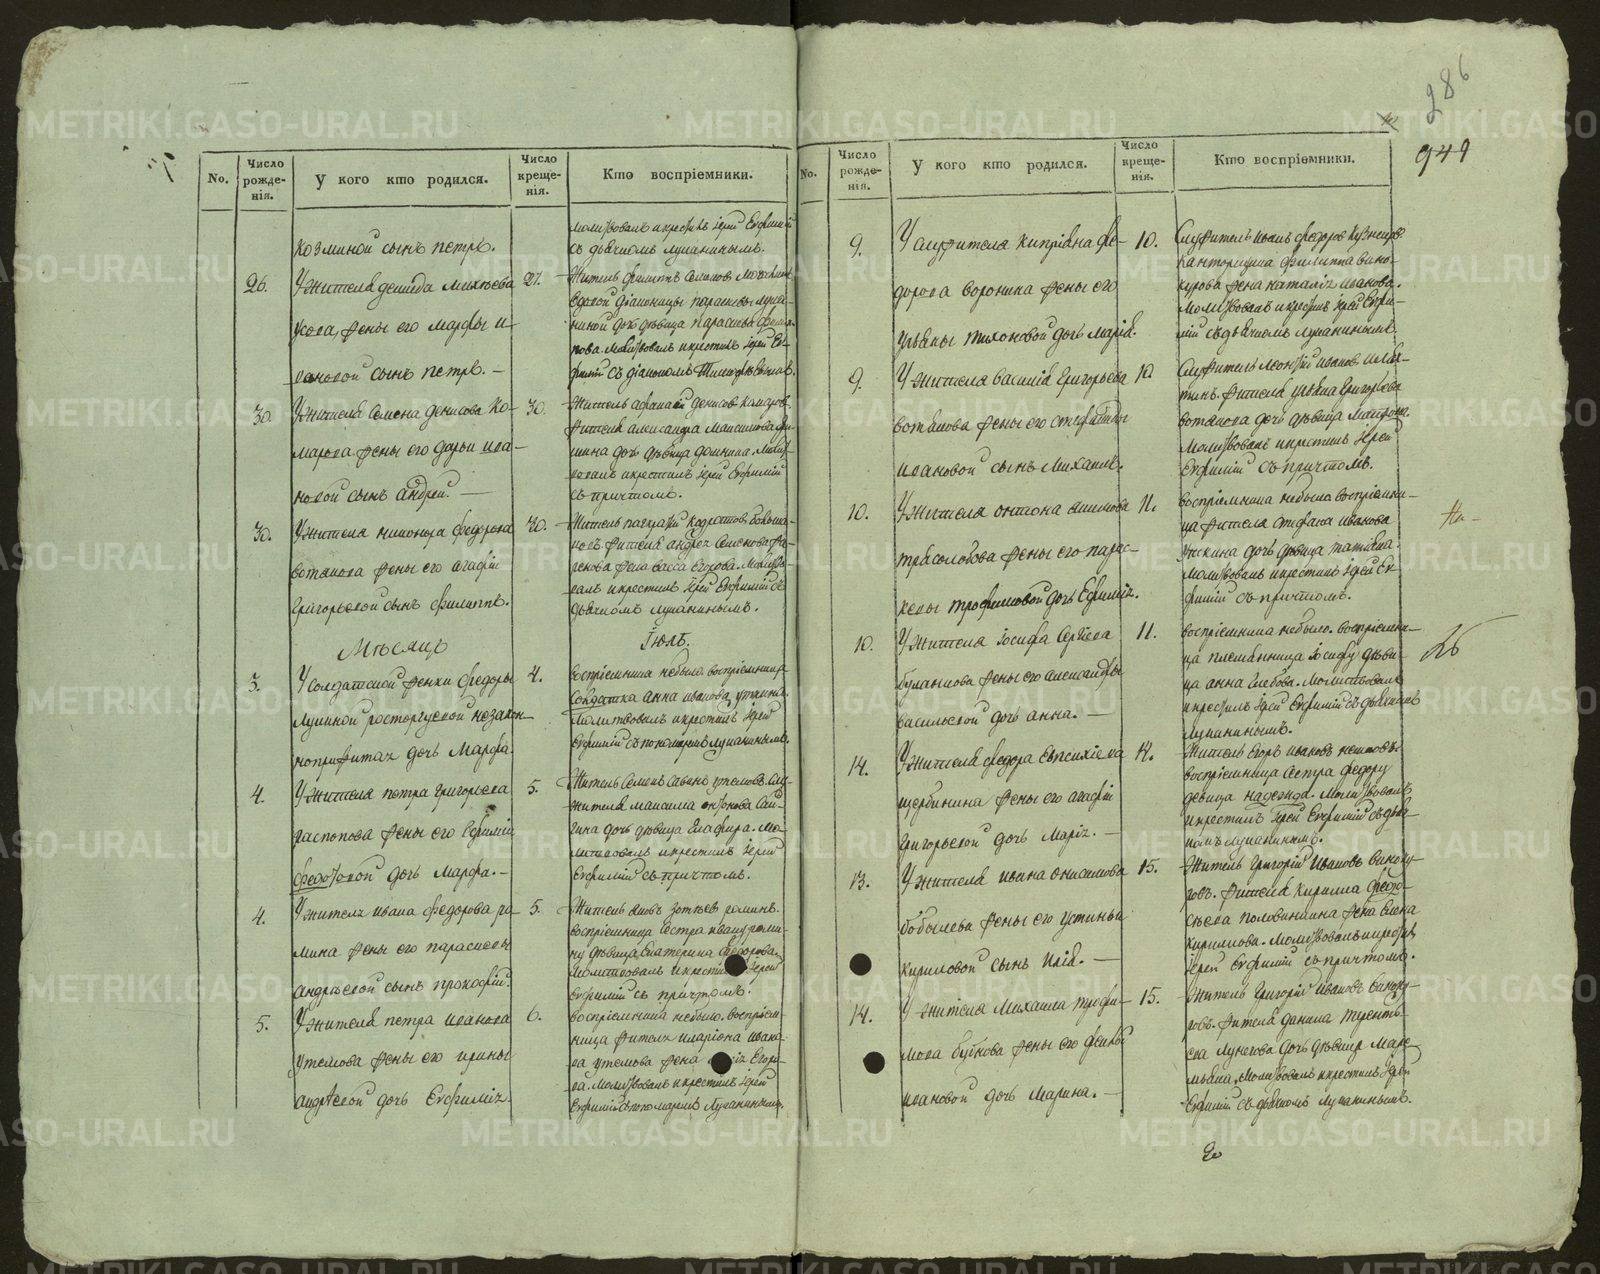 286
949
No.
Число рожде-нія.
У кого кто родился.
Число креще-нія.
Кто воспріемники.
козминой сынъ петръ.
молитвовалъ и крестилъ іерей Евфимій
съ дьячкомъ лупанинымъ.
26.
У жителя демида михѣева
усова, жены его марфы и-
вановой сынъ петръ. —
27.
Житель филиппъ Семеновъ
ниной дочь дѣвица параскева
пова. молитвовалъ и крестилъ іерей Ев-
фимій съ діакономъ
30.
У жителя Семена денисова ко-
марова жены его дарьи ива-
новой сынъ андрей. —
30.
Житель афанасій денисовъ комаровъ.
жителя александра максимова
шина дочь дѣвица домнина. молит-
вовалъ и крестилъ іерей Евфимій
съ причтомъ.
30.
У жителя никифора федорова
вотякова жены его агафіи
григорьевой сынъ филиппъ.
30.
Житель панкратій кодратовъ
жителя андрея Семенова
жена васса Егорова. молитво-
валъ и крестилъ іерей Евфимій съ
дьячкомъ лупанинымъ.
Мѣсяцъ
Іюль.
3.
У солдатской женки федоры
лукиной расторгуевой незакон-
ноприжитая дочь Марфа.
4.
воспріемника небыло. воспріемница
Солдатка анна иванова
молитвовалъ и крестилъ іерей
Евфимій съ пономаремъ лупанинымъ.
4.
У жителя петра григорьева
распопова жены его Ефиміи
федотовой дочь Марфа. —
5.
Житель Семенъ Савинъ утемовъ.
жителя максима онтонова
гина дочь дѣвица Глафира. мо-
литвовалъ и крестилъ іерей
Евфимій съ причтомъ.
4.
У жителя ивана федорова ро-
мина жены его парасковьи
андреевой сынъ прокофій.
5.
Житель яковъ зотѣевъ роминъ.
воспріемница сестра ивану роми-
ну дѣвица Екатерина Федорова.
молитвовалъ и крестилъ іерей
Евфимій съ причтомъ.
5.
У жителя петра иванова
утемова жены его ирины
андреевой дочь Евфимія.
6.
воспріемника небыло. воспріем-
ница жителя иларіона ивано-
ва утемова жена марія Егоро-
ва. молитвовалъ и крестилъ іерей
Евфимій съ пономаремъ Лупанинымъ.
No.
Число рожде-нія.
У кого кто родился.
Число креще-нія.
Кто воспріемники.
9.
У служителя кипріяна фе-
дорова воронина жены его
ульяны тихоновой дочь марія.
10.
Служитель иванъ федоровъ кузнецовъ.
канторщика филиппа вино-
курова жена наталія иванова.
молитвовалъ и крестилъ іерей Евфи-
мій съ дьячкомъ лупанинымъ.
9.
У жителя василія григорьева
вотякова жены его степаниды
ивановой сынъ михаилъ.
10.
Служитель леонтій ивановъ
жителя ульяна григорьева
вотякова дочь дѣвица матрона.
молитвовалъ и крестилъ іерей
Евфимій съ причтомъ.
10.
У жителя онтона якимова
трясолобова жены его парас-
кевы трофимовой дочь Ефимія.
11.
воспріемника небыло воспріемни-
ца жителя стефана иванова
ужкина дочь дѣвица татіана.
молитвовалъ и крестилъ іерей Ев-
фимій съ причтомъ.
10.
У жителя іосифа Сергѣева
буланцова жены его александры
васильевой дочь анна. —
11.
воспріемника небыло. воспріемни-
ца племянница іосифу дѣви-
ца анна глебова. молитвовалъ
и крестилъ іерей Евфимій съ дьячкомъ
лупанинымъ.
26
14.
У жителя федора
щербинина жены его агафіи
григорьевой дочь Марія. —
14.
Житель Егоръ ивановъ
воспріемница сестра федору
девица надежда. молитвовалъ
и крестилъ іерей Евфимій съ дьяч-
комъ лупанинымъ.
13.
У жителя ивана онисимова
бобылева жены его устиньи
кириловой сынъ илія. —
15.
Житель григорій ивановъ виноку-
ровъ. жителя кирилла федо-
сѣева половинкина жена Елена
кириллова. молитвовалъ и крестилъ
іерей Евфимій съ причтомъ.
14.
У жителя Михаила трофи-
мова бункова жены его феклы
ивановой дочь Марина. —
15.
Житель григорій ивановъ виноку-
ровъ. жителя данила терентье-
ва лунегова дочь дѣвица маре-
мьяна. молитвовалъ и крестилъ іерей
Евфимій съ дьячкомъ лупанинымъ.
METRIKI.GASO-URAL.RU